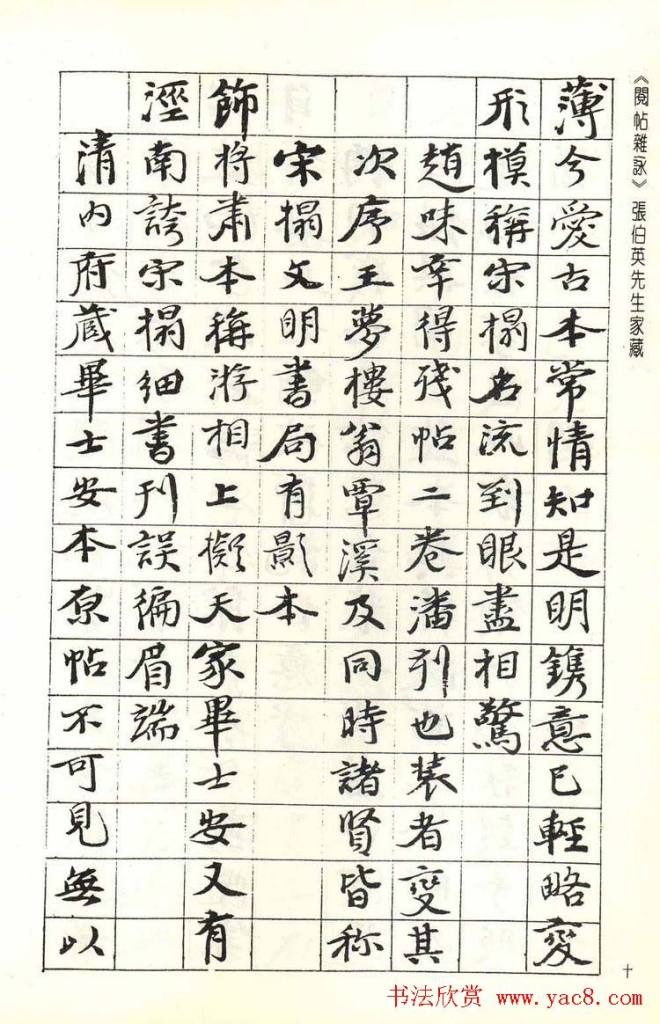 《閱帖雜詠》張伯英先生家藏
薄今愛古本常情知是明鐫意已輕略變
形模稱宋搨名流到眼盡相驚
趙味辛得殘帖二卷潘刊也裝者變其
次序王夢樓翁覃溪及同時諸賢皆称
宋搨文明書局有影本
飾將肅本稱游相上擬天家畢士安又有
涇南誇宋搨細書刊誤徧眉端
清內府蔵畢士安本原帖不可見無以
十
书法欣赏 www.yac8.com